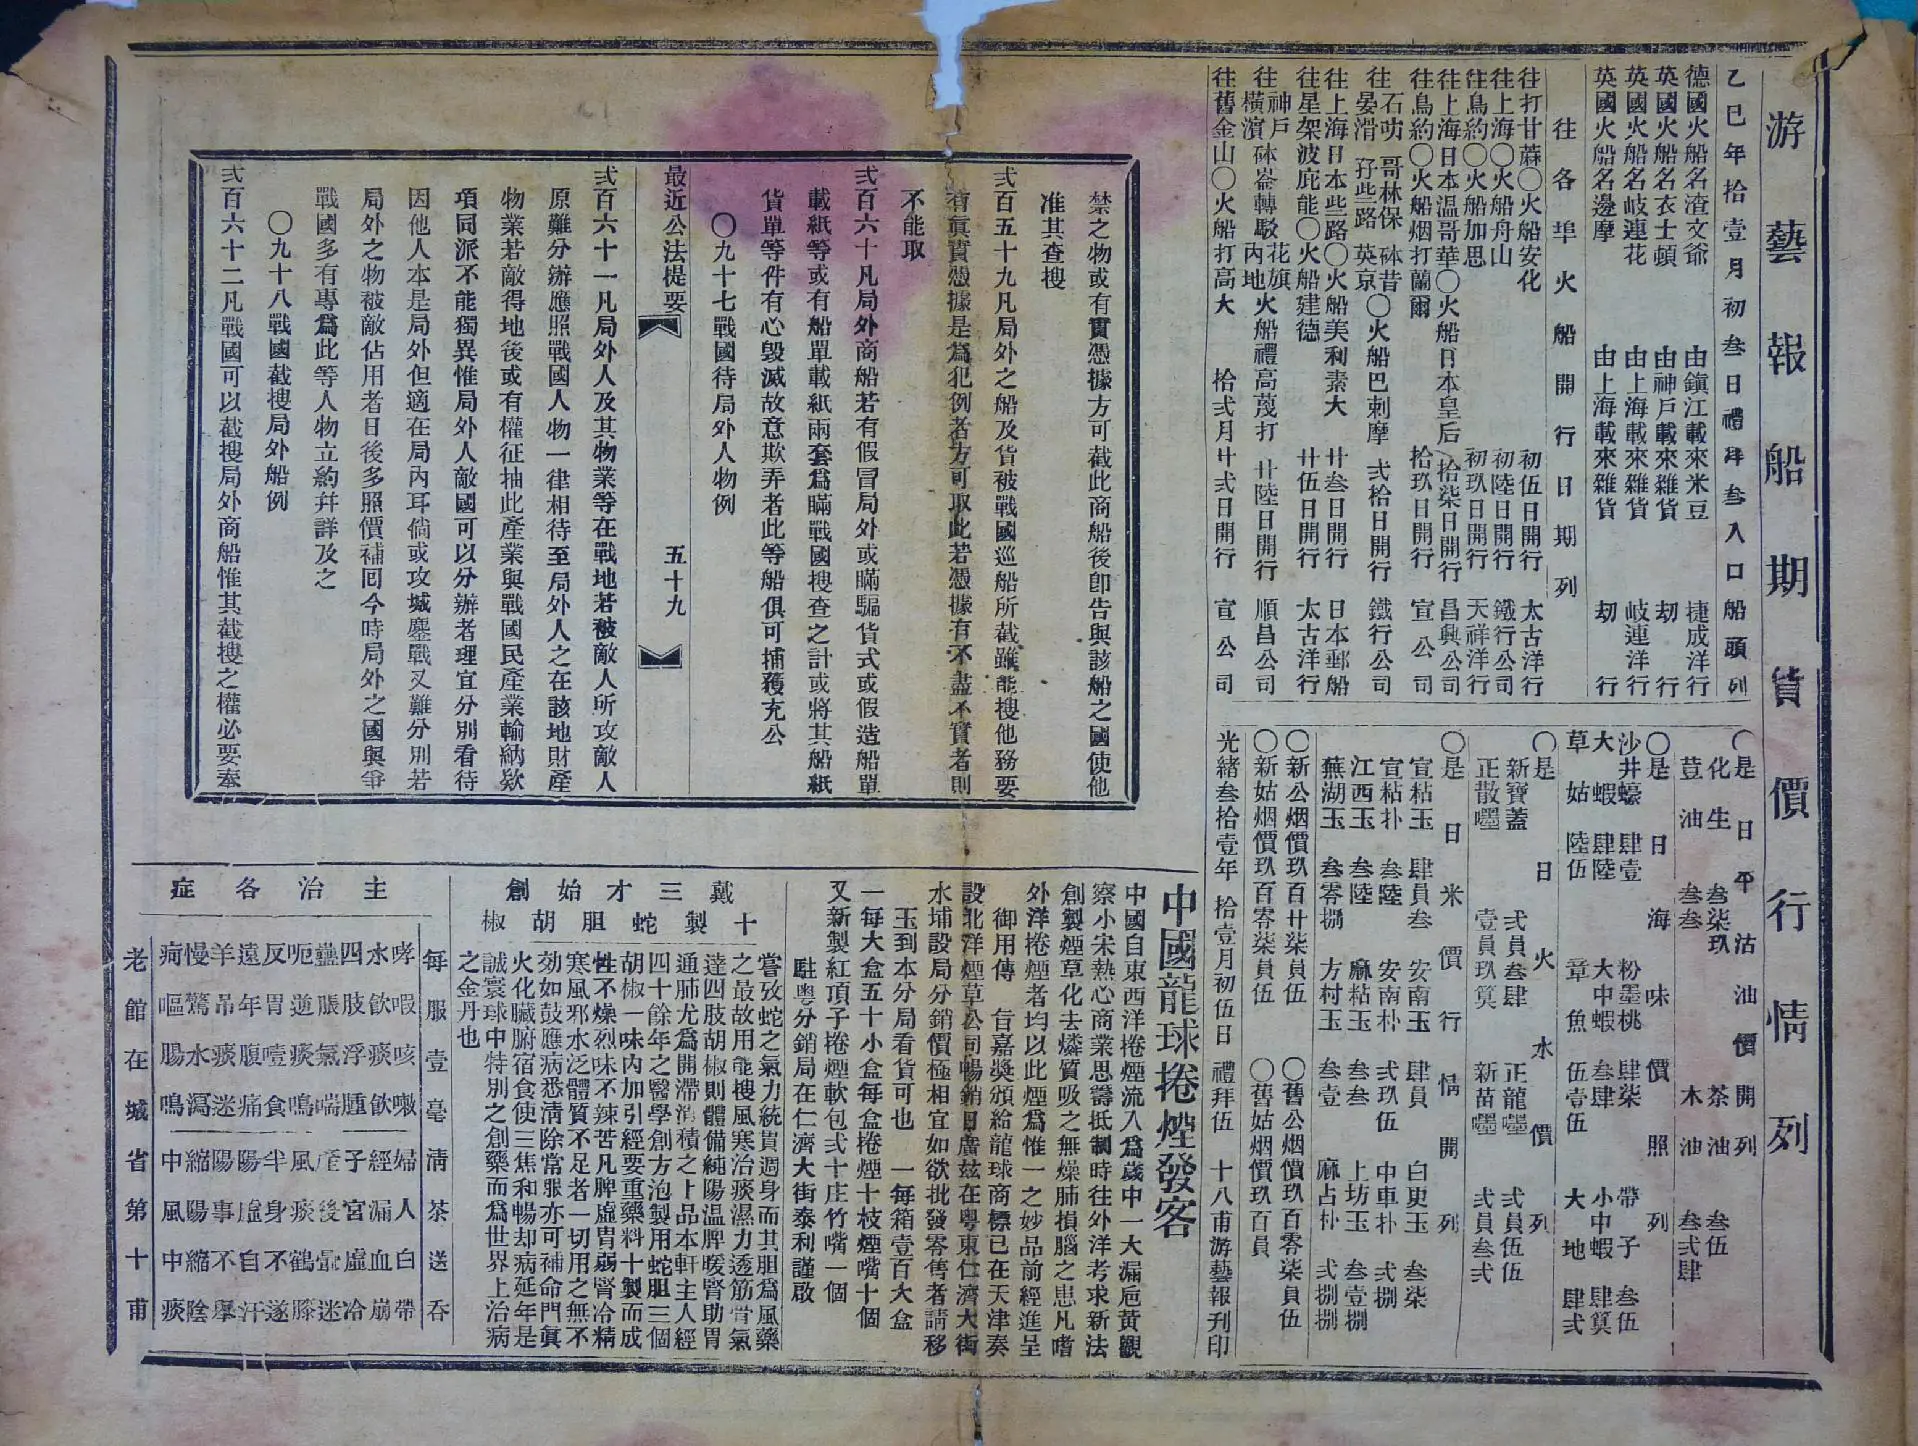 游藝報船期貨價行情列
乙巳年拾壹月初叁日禮拜叁入口船頭列
德國火船名渣文爺 由鎮江載來米豆 捷成洋行
英國火船名衣士頓 由神戶載來雜貨 刼行
英國火船名岐連花 由上海載來雜貨 岐連洋行
英國火船名邊摩 由上海載來雜貨 刼行
往各埠火船開行日期列
往打甘蔴〇火船安化 初伍日開行 太古洋行
往上海〇火船舟山 初陸日開行 鐵行公司
往鳥約〇火船加思 初玖日開行 天祥洋行
往上海日本温哥華〇火船日本皇后 拾柒日開行 昌興公司
往鳥約〇火船烟打蘭爾 拾玖日開行 宣公司
往石叻 哥林保 砵昔
晏滑 孖些路 英京〇火船巴刺摩 弍拾日開行 鐵行公司
往上海日本些路〇火船美利素大 廿叁日開行 日本郵船
往星架波庇能〇火船建德 廿伍日開行 太古洋行
往神戶 花旗
橫濱砵崙轉駁內地火船禮高蔑打 廿陸日開行 順昌公司
往舊金山〇火船打高大 拾弍月廿弍日開行 宣公司
〇是日平沽油價開列
化生 叁柒玖 茶油 叁伍
荳油 叁叁 木油 叁弍肆
〇是日海味價照列
沙井蠔 肆壹 粉墨桃 肆柒 帶子 叁伍
大蝦 肆陸 大中蝦 叁肆 小中蝦 肆箕
草姑 陸伍 章魚 伍壹伍 大地 肆弍
〇是日火水價列
新寶蓋 弍員叁肆 正龍嚜 弍員伍伍
正散嚜 壹員玖箕 新苗嚜 弍員叁弍
〇是日米價行情開列
宣粘玉 肆員叁 安南玉 肆員 白更玉 叁柒
宣粘扑 叁陸 安南朴 弍玖伍 中車扑 弍捌
江西玉 叁陸 麻粘玉 叁叁 上坊玉 叁壹捌
蕪湖玉 叁零捌 方村玉 叁壹 麻占扑 弍捌捌
〇新公烟價玖百廿柒員伍 〇舊公烟價玖百零柒員伍
〇新姑烟價玖百零柒員伍 〇舊姑烟價玖百員
光緒叁拾壹年 拾壹月初伍日 禮拜伍 十八甫游藝報刊印
禁之物或有實憑據方可截此商船後卽告與該船之國使他
准其查搜
弍百五十九凡局外之船及貨被戰國巡船所截雖能搜他務要
有眞實憑據是爲犯例者方可取此若憑據有不盡不實者則
不能取
弍百六十凡局外商船若有假冒局外或瞞騙貨式或假造船單
載紙等或有船單載紙兩套爲瞞戰國搜查之計或將其船紙
貨單等件有心毀滅故意欺弄者此等船俱可捕獲充公
〇九十七戰國待局外人物例
最近公法提要 五十九
弍百六十一凡局外人及其物業等在戰地若被敵人所攻敵人
原難分辦應照戰國人物一律相待至局外人之在該地財產
物業若敵得地後或有權征抽此產業與戰國民產業輸納欵
項同派不能獨異惟局外人敵國可以分辦者理宜分別看待
因他人本是局外但適在局內耳倘或攻城鏖戰又難分別若
局外之物被敵佔用者日後多照價補回今時局外之國與爭
戰國多有專爲此等人物立約幷詳及之
〇九十八戰國截搜局外船例
弍百六十二凡戰國可以截搜局外商船惟其截搜之權必要奉
中國龍球捲煙發客
中國自東西洋捲煙流入爲歲中一大漏巵黃觀
察小宋熱心商業思籌抵制時往外洋考求新法
創製煙草化去燐質吸之無燥肺損腦之患凡嗜
外洋捲煙者均以此煙爲惟一之妙品前經進呈
御用傳 旨嘉獎頒給龍球商標已在天津奏
設北洋煙草公司暢銷日廣茲在粵東仁濟大街
水埔設局分銷價極相宜如欲批發零售者請移
玉到本分局看貨可也 一每箱壹百大盒
一每大盒五十小盒每盒捲煙十枝煙嘴十個
又新製紅頂子捲煙軟包弍十庄竹嘴一個
駐粵分銷局在仁濟大街泰利謹啟
戴三才始創
十製蛇胆胡椒
嘗攷蛇之氣力統貫週身而其胆爲風藥
之最故用能搜風寒治痰濕力透筋骨氣
達四肢胡椒則體備純陽温脾暖腎助胃
通肺尤爲開滯消積之上品本軒主人經
四十餘年之醫學創方泡製用蛇胆三個
胡椒一味內加引經要重藥料十製而成
性不燥烈味不辣苦凡脾虛胃弱腎冷精
寒風邪水泛體質不足者一切用之無不
効如鼓應病悉清除常服亦可補命門眞
火化臟腑宿食使三焦和暢却病延年是
誠寰球中特別之創藥而爲世界上治病
之金丹也
主治各症
每服壹毫淸茶送吞
哮喘咳嗽 婦人白帶
水飲痰飲 經漏血崩
四肢浮腫 子宮虛冷
蠱脹氣喘 產後暈迷
呃逆痰鳴 風痰鶴膝
反胃噎食 半身不遂
遠年腹痛 陽虛自汗
羊吊痰迷 陽事不舉
慢驚水瀉 縮陽縮陰
疴嘔腸鳴 中風中痰
老館在城省第十甫